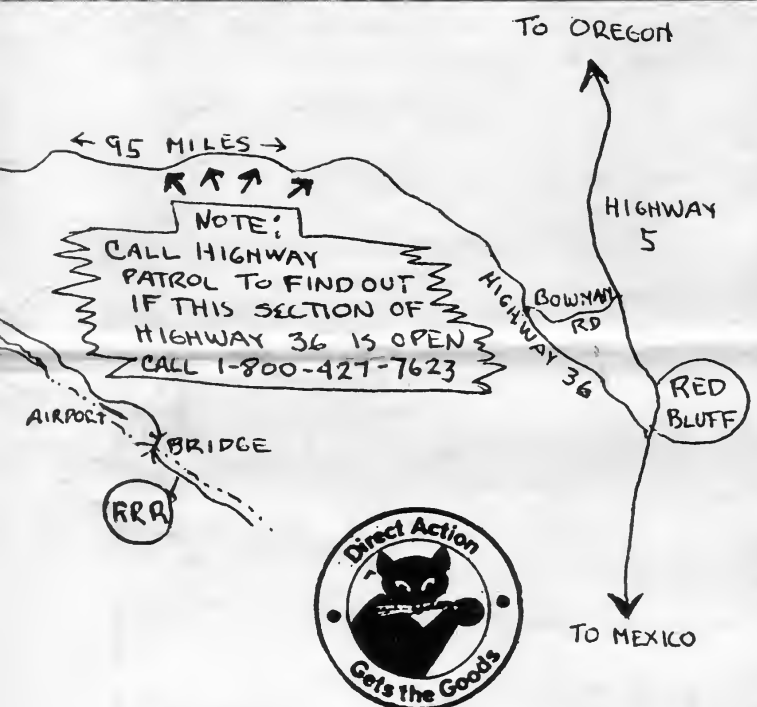 TO OREGON
← 95 MILES →
NOTE:
CALL HIGHWAY
PATROL TO FIND OUT
IF THIS SECTION OF
HIGHWAY 36 IS OPEN
CALL 1-800-427-7623
HIGHWAY
5
BOWMAN
RD
HIGHWAY 36
RED
BLUFF
AIRPORT
BRIDGE
RRR
Direct Action
Gets the Goods
TO MEXICO